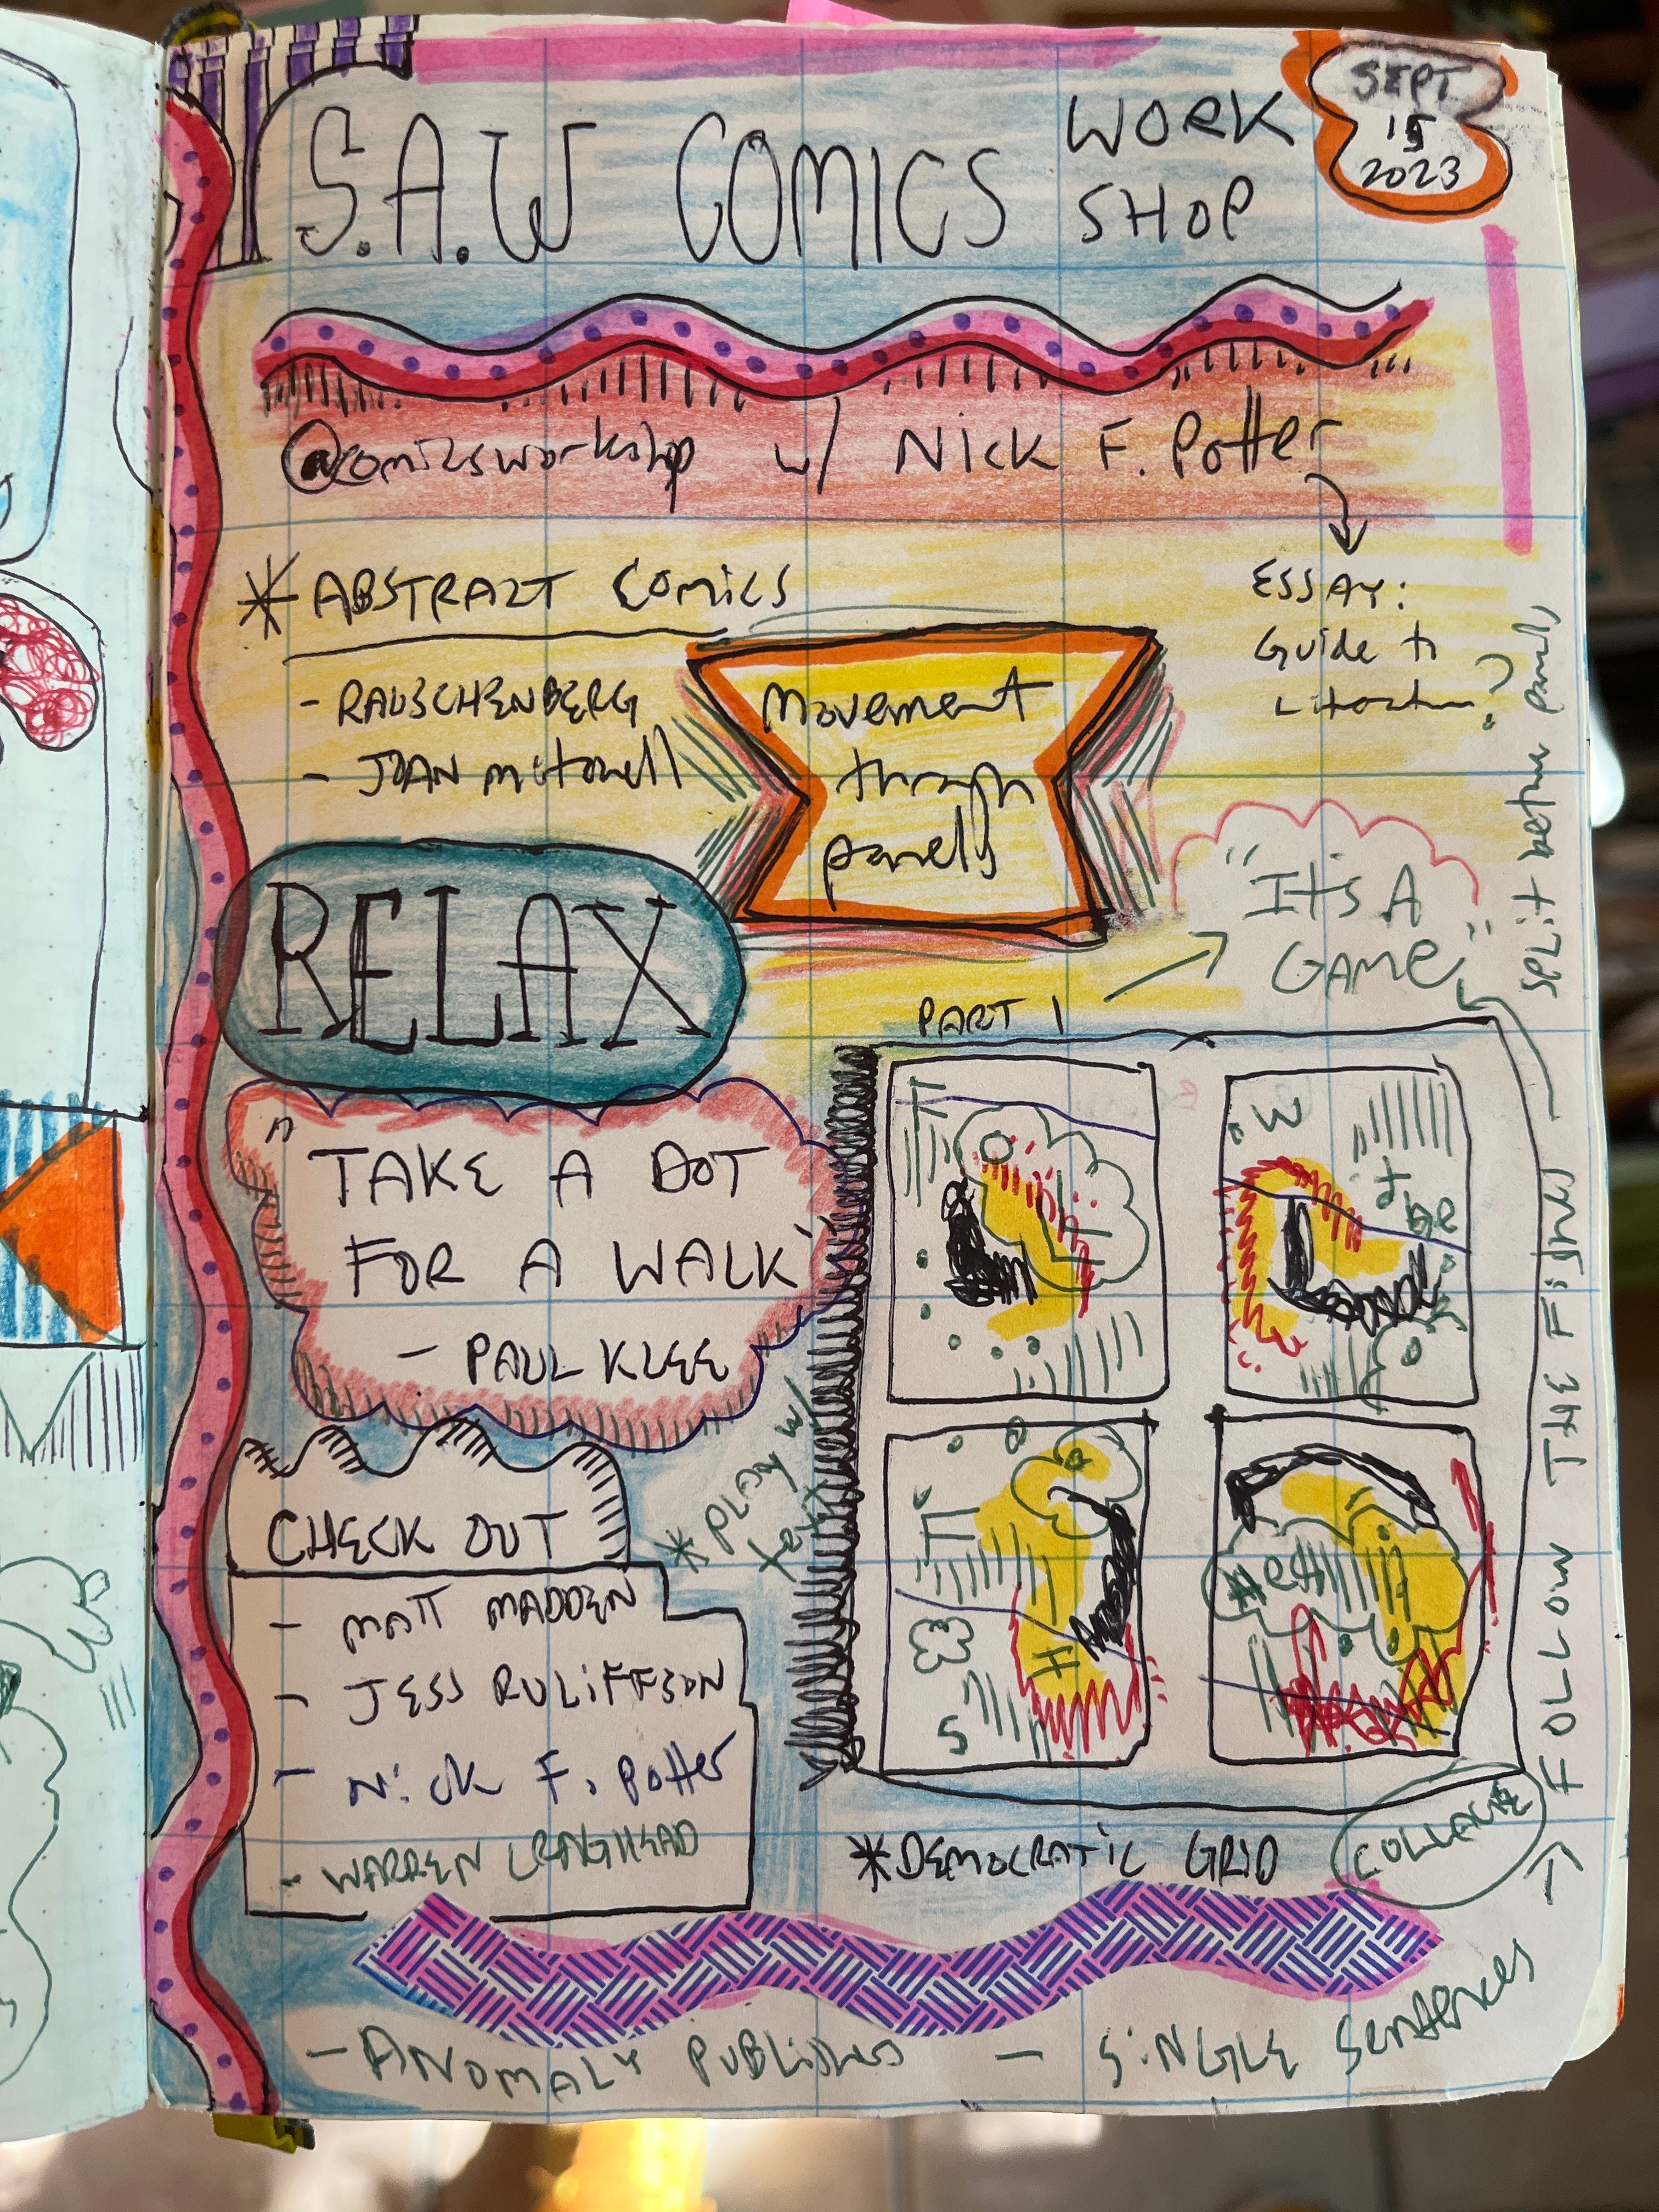 S.A.W COMICS WORK SHOP
SEPT
15
2023
@comicsworkshop w/ Nick F. Potter
ABSTRAZT COMICS
- RAUSCHENBERG
- JOAN
ESSAY:
Guide to
Movement
through
panells
RELAX
"It's A
GAME"
split betwn panels
FOLLOW THE FISHS
PART 1
"TAKE A DOT
FOR A WALK"
- PAUL KLEE
CHECK OUT
- MATT MADDEN
- JESS RULIFFSON
- Nick F. Potter
- WARREN CRAGHEAD
* PLAY w/
text
F
W
be
* DEMOCRATIC GRID
COLLAGE
- ANOMALY PUBLISHES
- SINGLE SENTENCES